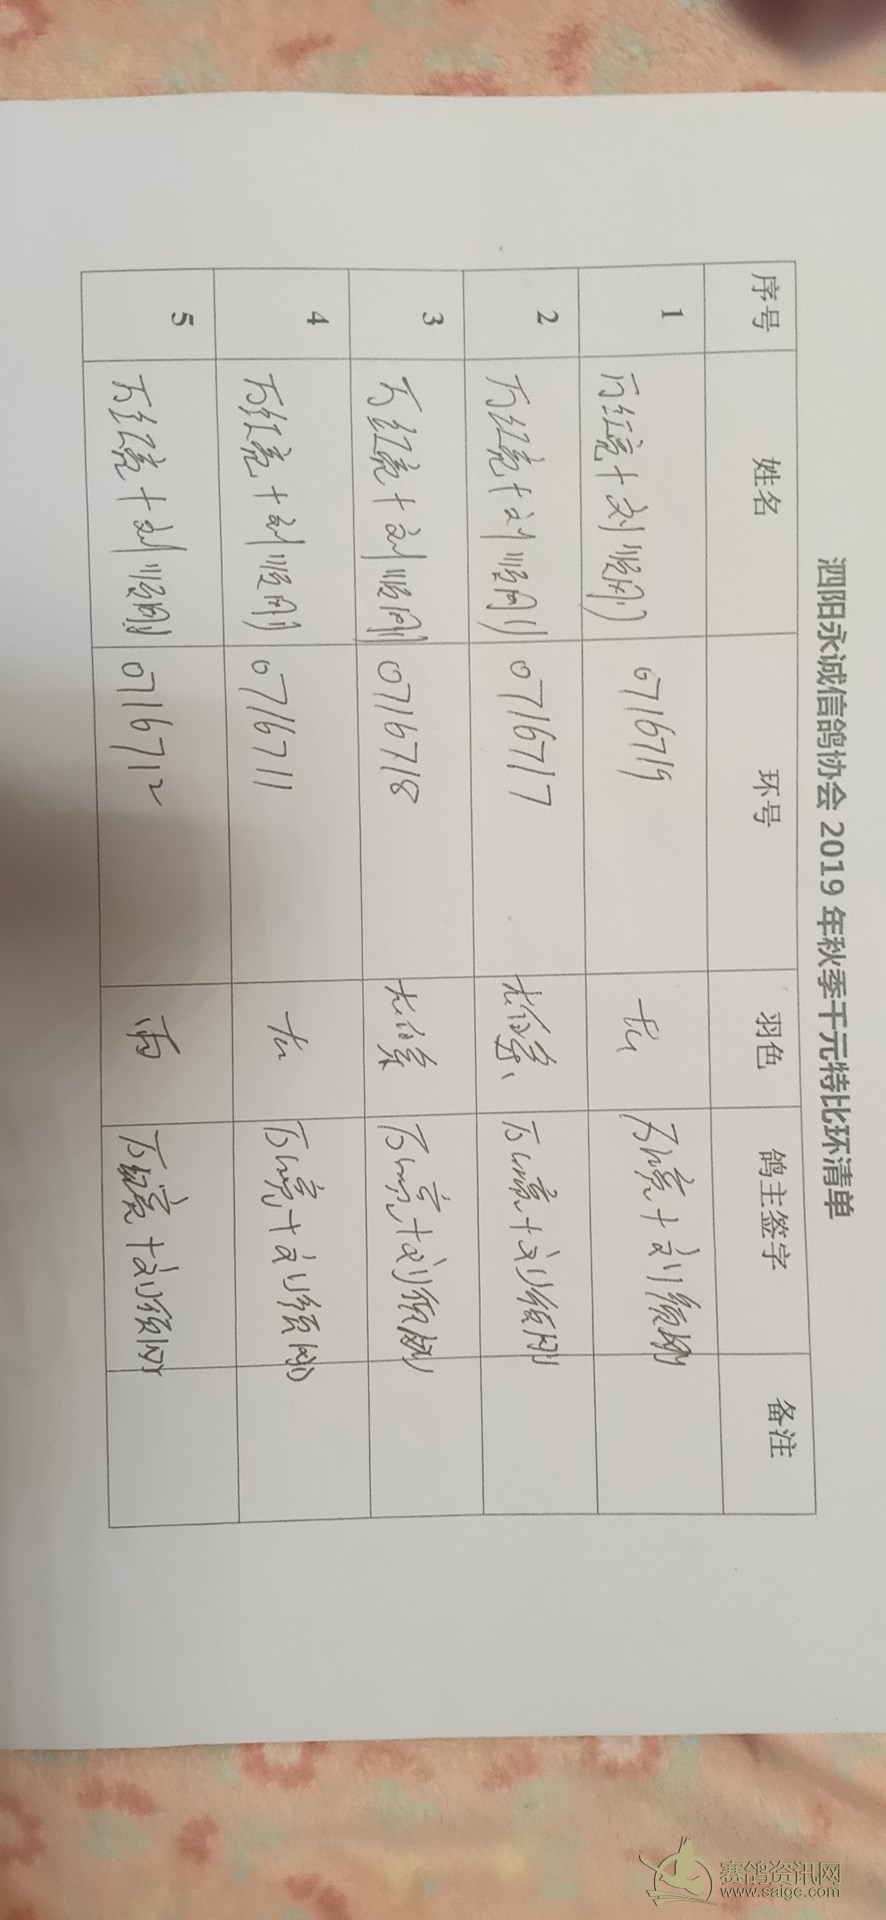 泗阳永诚信鸽协会 2019 年秋季千元特比环清单
序号 姓名 环号 羽色 鸽主签字 备注
1 万红亮+刘顺刚 0716719 万红亮+刘顺刚
2 万红亮+刘顺刚 0716717 万红亮+刘顺刚
3 万红亮+刘顺刚 0716718 万红亮+刘顺刚
4 万红亮+刘顺刚 0716711 万红亮+刘顺刚
5 万红亮+刘顺刚 0716712 雨 万红亮+刘顺刚
赛鸽资讯网
www.saigc.com